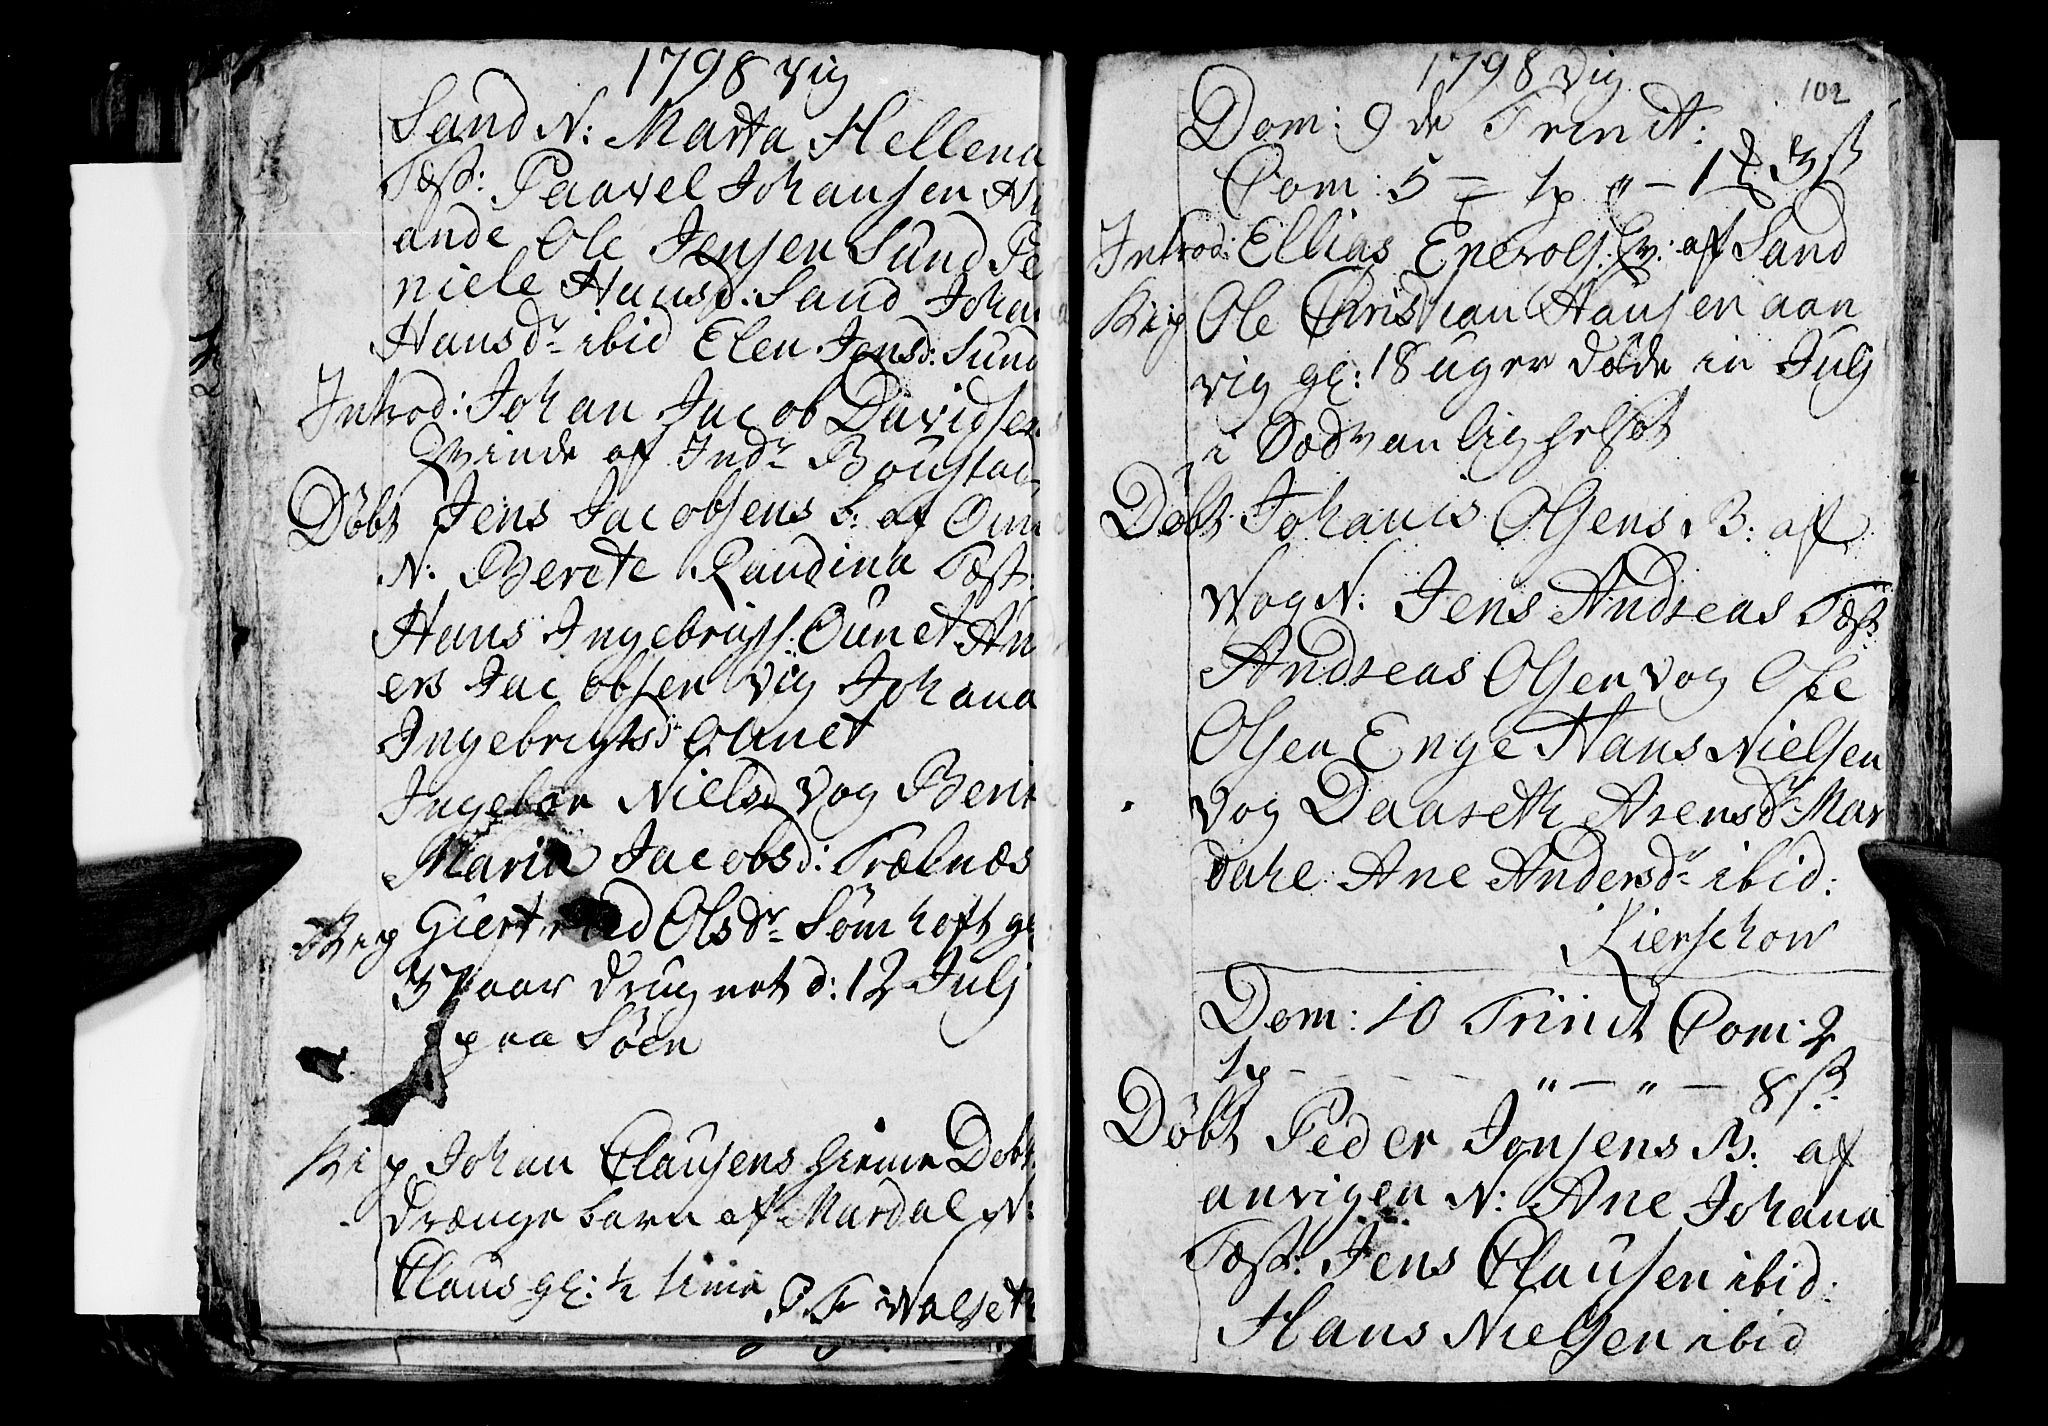 1798 Vig
Sand N: Marta Hellena
Test: Paavel Johansen
ande Ole Jensen Sund
niele Hansd: Sand Johan
Hansdr ibid Elen Jensd: Sund
Introd: Johan Jacob Davidsens
Qvinde af Indr Boustad
Døbt Jens Jacobsens b: af
N: Berete Randina Test:
Hans Ingebrigts: Ounet An
ers Jacobsen Vig Johana
Ingebrigtsdr Ounet
Ingebor Nielsd Vog Beret
Maria Jacobsd: Trælnæs
Begr Giertrued Olsdr Sømhoft gl
37 aar drugnet d: 12 Julj
paa Søen
Begr Johan Clausens hieme Døbt
drænge barn af Mardal N:
Claus gl: ½ time

1798 Vig
102
Dom: 9 de Trinit:
Com: 5 – 1p " – 1 3ß
Introd: Ellias Enevols: Qv: af Sand
Begr Ole Christian Hansen aan
vig gl: 18 uger døde in Julj
i Sædvanlig helset
Døbt Johanis Olsens B: af
Vog N: Jens Andreas Test
Andreas Olsen Vog Ole
Olsen Enge Hans Nielsen
Vog Daareth Arensdr Mar
dahl Ane Andersdr ibid:
Kierschow
Dom: 10 Trinit Com: 2
1p – – – " – " – 8ß
Døbt Peder Jonsens B: af
anvigen N: Ane Johana
Test: Jens Clausen ibid:
Hans Nielsen ibid